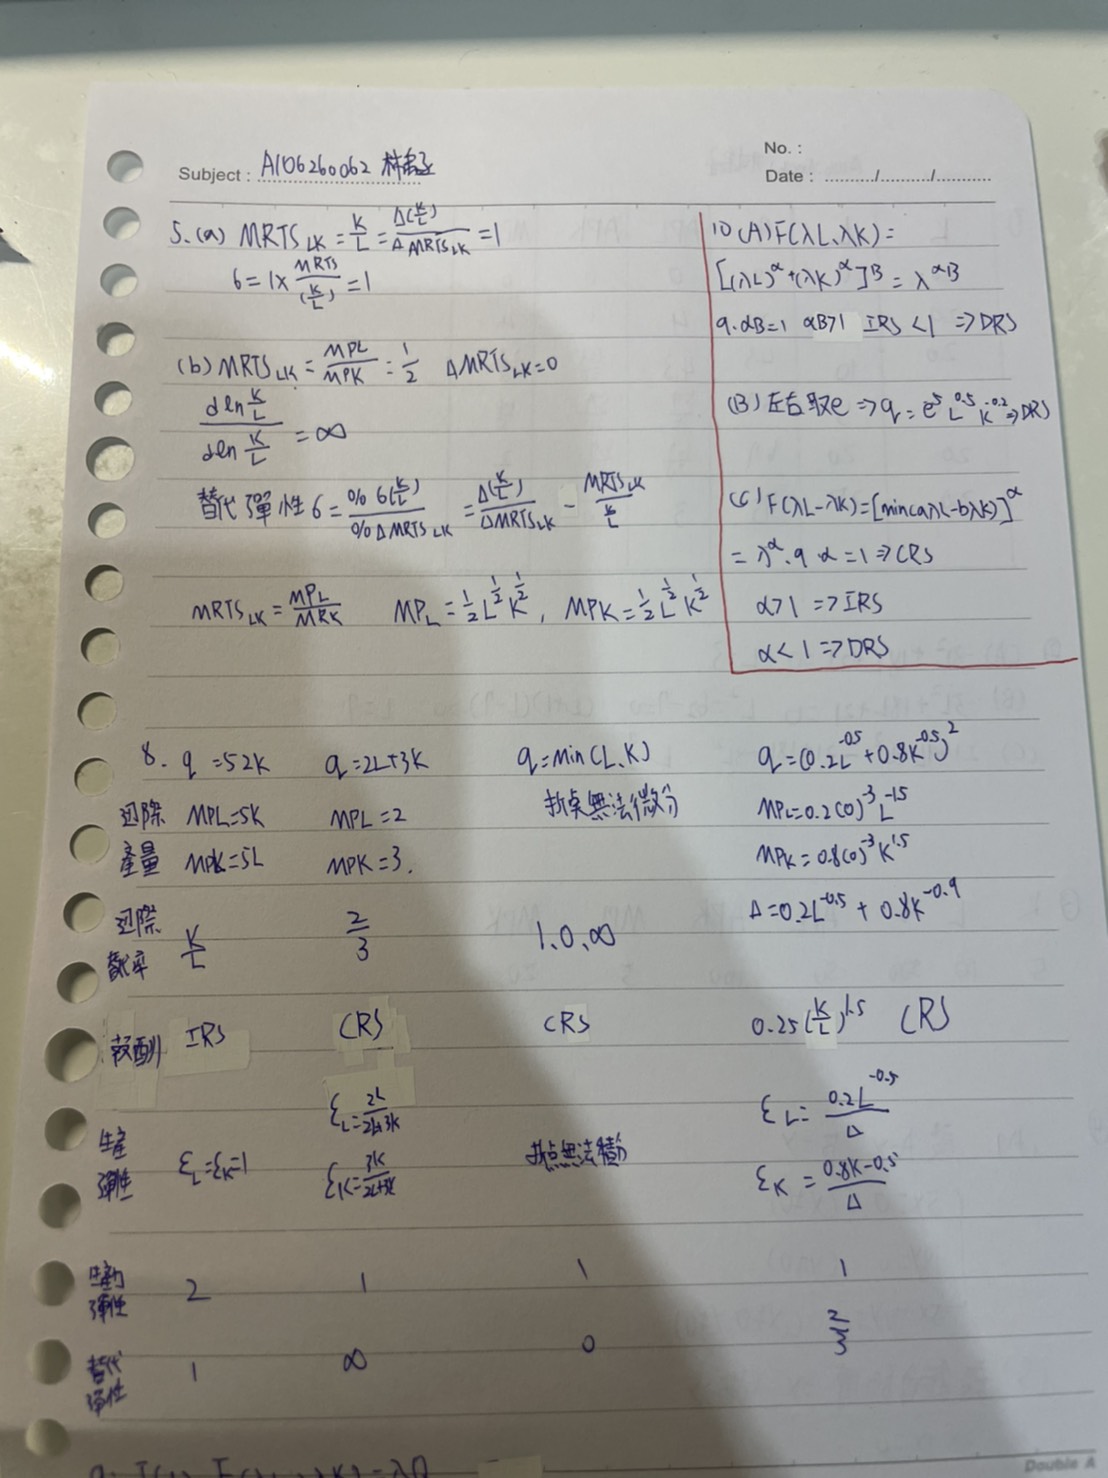 No. :
Subject : A106260062 林
Date : ......../......../........
5.(a) MRTS LK = K/L = Δ(K/L)/Δ MRTS LK = 1
6 = 1× MRTS/(K/L) = 1
(b) MRTS LK = MPL/MPK = 1/2 ΔMRTS LK = 0
dln K/L / dln K/L = ∞
替代彈性 6 = % 6(K/L) / % Δ MRTS LK = Δ(K/L)/ΔMRTS LK - MRTS LK / K/L
MRTS LK = MPL/MRK MPL = 1/2 L^1/2 K^1/2 , MPK = 1/2 L^1/2 K^1/2
10 (A) F(λL, λK) =
[(λL)^α + (λK)^α]B = λ^αB
9. αB=1 αB>1 IRS <1 => DRS
(B) 左右取e => q = e^5 L^0.5 K^-0.2 => DRS
(C) F(λL-λK) = [min(aλ(-bλK)]^α
= λ^α . 9 α = 1 => CRS
α>1 => IRS
α<1 => DRS
8. q = 52K q = 2L+3K q = Min(L.K) q = (0.2L^-0.5 + 0.8K^-0.5)^2
邊際 MPL=5K MPL=2 折點無法微分 MPL=0.2(0)^-3 L^-1.5
產量 MPK=5L MPK=3. MPK=0.8(0)^-3 K^1.5
Δ=0.2L^-0.5 + 0.8K^-0.9
邊際 K/L 2/3 1.0.∞
替代率
報酬 IRS CRS CRS 0.25(K/L)^1.5 CRS
生產 ε L = ε K = 1 ε L = 2L/2L+3K 折点無法 ε L = 0.2L^-0.5/Δ
彈性 ε K = 3K/2L+3K ε K = 0.8K-0.5/Δ
生產力 2 1 1 1
彈性
替代 1 ∞ 0 2/3
彈性
Double A